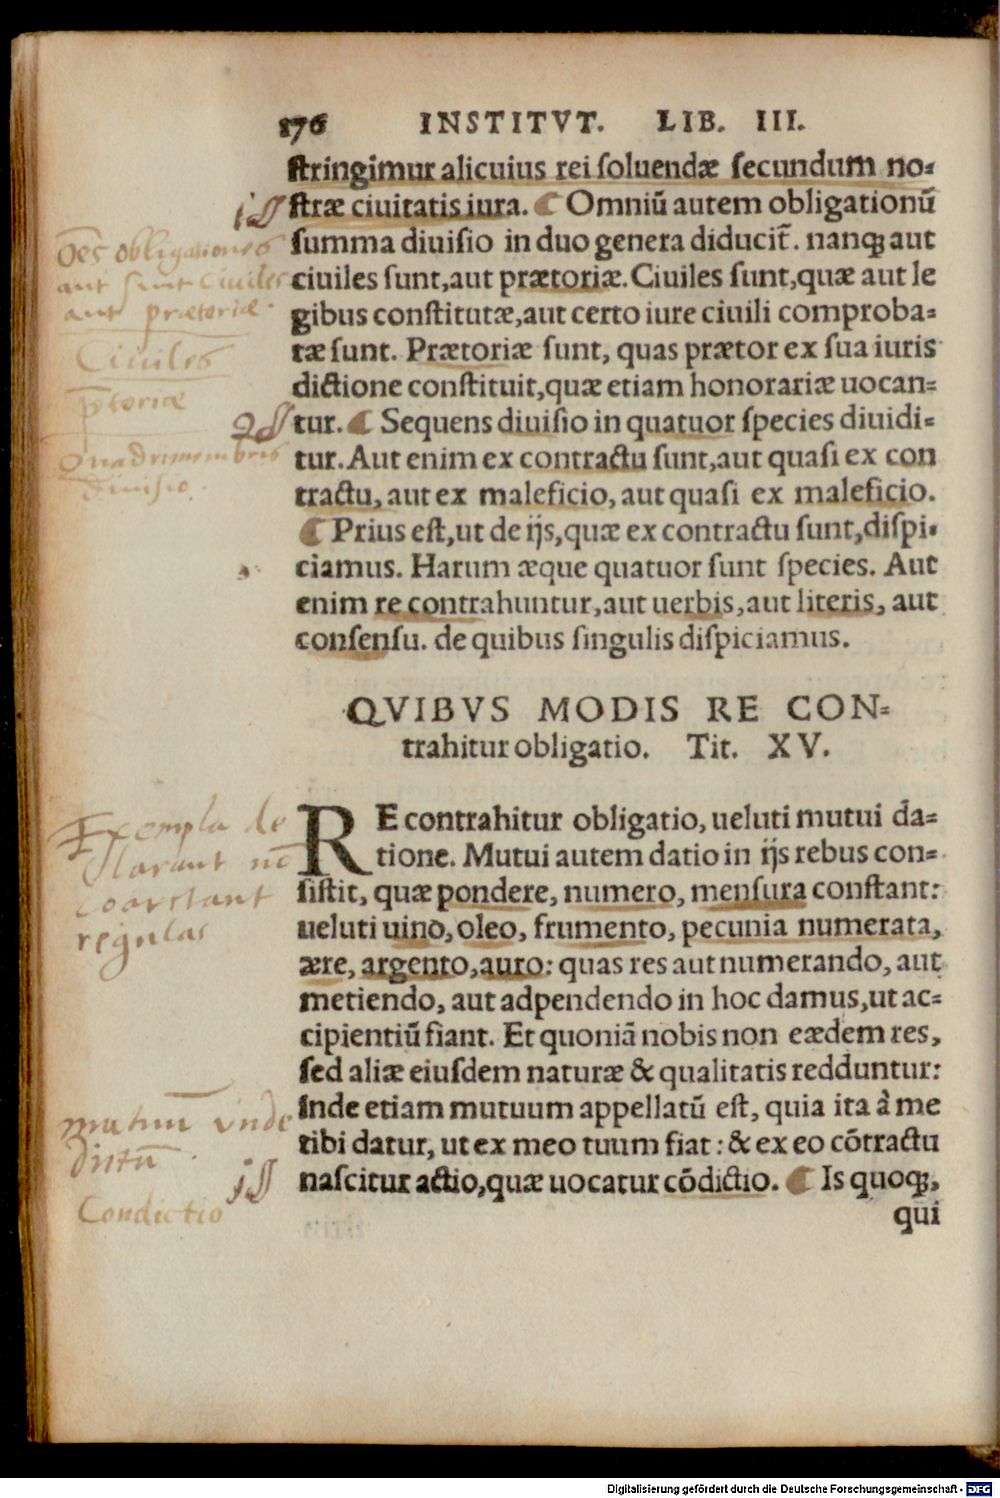 176 INSTITVT. LIB. III.
ſtringimur alicuius rei ſoluendæ ſecundum no=
ſtræ ciuitatis iura. ¶ Omniũ autem obligationũ
ſumma diuiſio in duo genera diducit̃. nanq; aut
ciuiles ſunt,aut prætoriæ. Ciuiles ſunt,quæ aut le
gibus conſtitutæ,aut certo iure ciuili comproba=
tæ ſunt. Prætoriæ ſunt, quas prætor ex ſua iuris
dictione conſtituit,quæ etiam honorariæ uocan=
tur. ¶ Sequens diuiſio in quatuor ſpecies diuidi=
tur. Aut enim ex contractu ſunt,aut quaſi ex con
tractu, aut ex maleficio, aut quaſi ex maleficio.
¶ Prius eſt,ut de ijs,quæ ex contractu ſunt,diſpi=
ciamus. Harum æque quatuor ſunt ſpecies. Aut
enim re contrahuntur,aut uerbis,aut literis, aut
conſenſu. de quibus ſingulis diſpiciamus.
i ¶
Oẽs obligationes
aut sunt Ciuiles
aut prætoriæ.
Ciuiles
p̃toriæ
2 ¶
Quadrimembris
diuisio.
QVIBVS MODIS RE CON=
trahitur obligatio. Tit. XV.
RE contrahitur obligatio, ueluti mutui da=
tione. Mutui autem datio in ijs rebus con=
ſiſtit, quæ pondere, numero, menſura conſtant:
ueluti uino, oleo, frumento, pecunia numerata,
ære, argento,auro: quas res aut numerando, aut
metiendo, aut adpendendo in hoc damus,ut ac=
cipientiũ fiant. Et quoniã nobis non eædem res,
ſed aliæ eiuſdem naturæ & qualitatis redduntur:
inde etiam mutuum appellatũ eſt, quia ita à me
tibi datur, ut ex meo tuum fiat: & ex eo cõtractu
naſcitur actio,quæ uocatur cõdictio. ¶ Is quoq;,
qui
Exempla de
clarant nõ
coarctant
regulas
mutuũ vnde
dictũ.
i ¶
Condictio
Digitalisierung gefördert durch die Deutsche Forschungsgemeinschaft - DFG